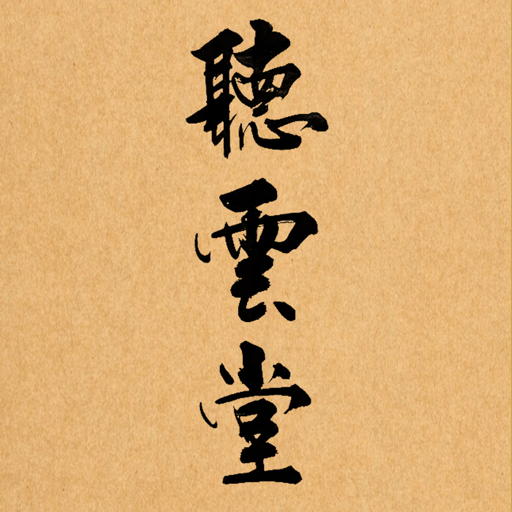 聽雲堂